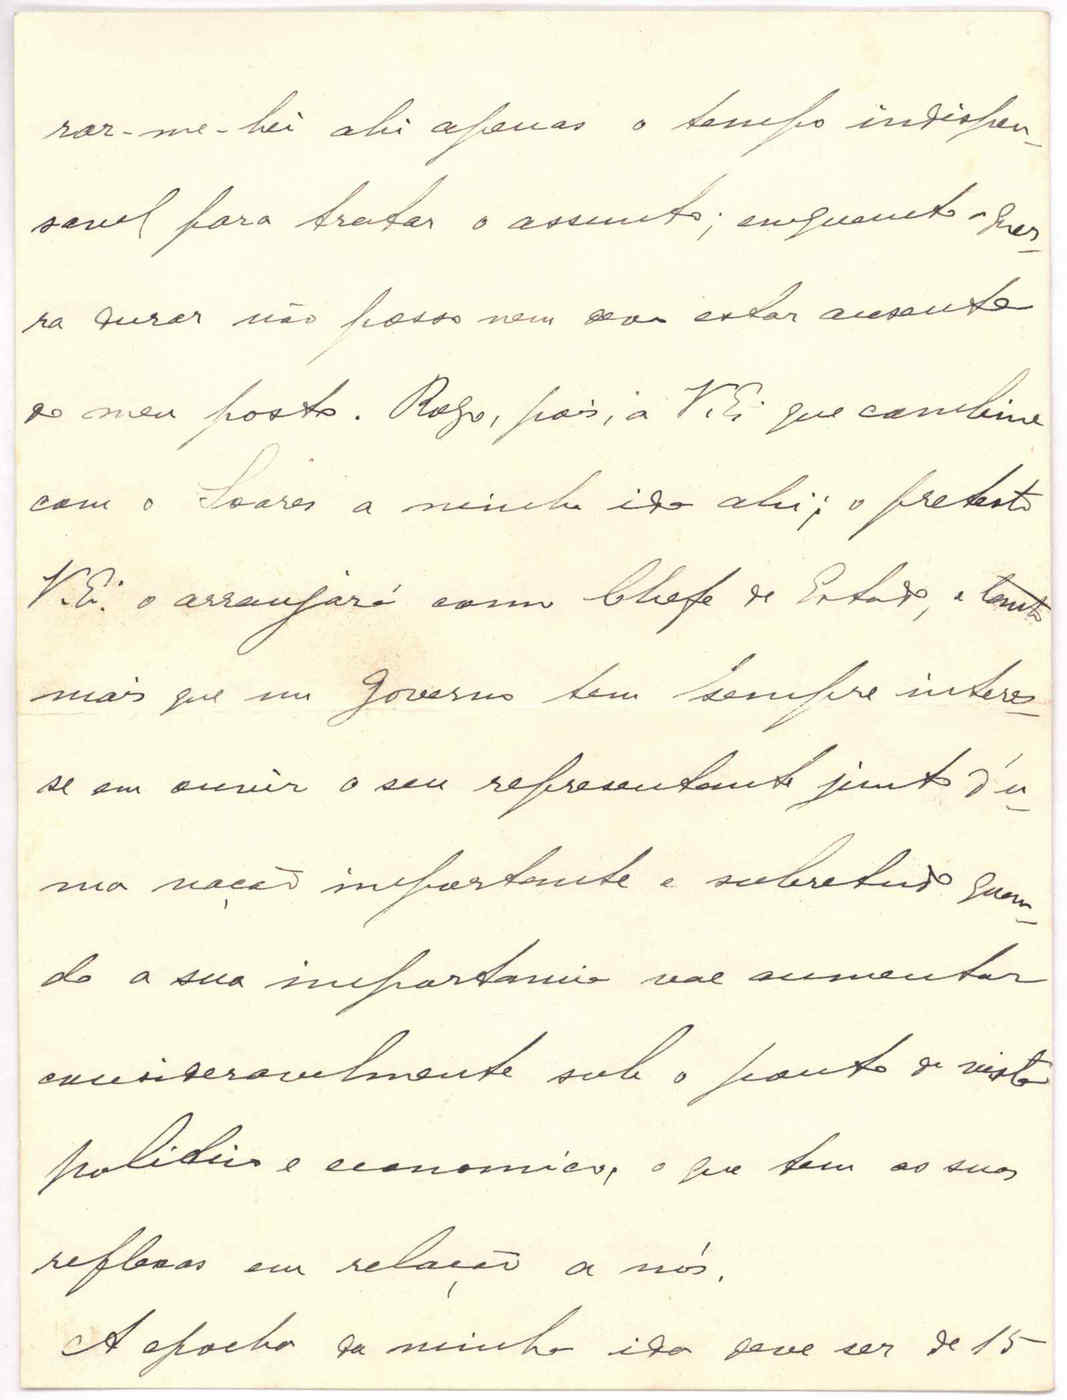 rar-me-hei ahi apenas o tempo indispen-
savel para tratar o assumto; emquanto a guer-
ra durar não posso nem devo estar ausente
do meu posto. Rogo, pois, a V. Ex. que combine
com o Soares a minha ida ahi; o pretexto
V. Ex. o arranjará como Chefe de Estado, e tanto
mais que um Governo tem sempre interes-
se em ouvir o seu representante junto d'u-
ma nação importante e sobretudo quan-
do a sua importancia vae aumentar
consideravelmente sob o ponto de vista
politico e economico, o que tem as suas
reflexos em relação a nós.
A epocha da minha ida deve ser de 15